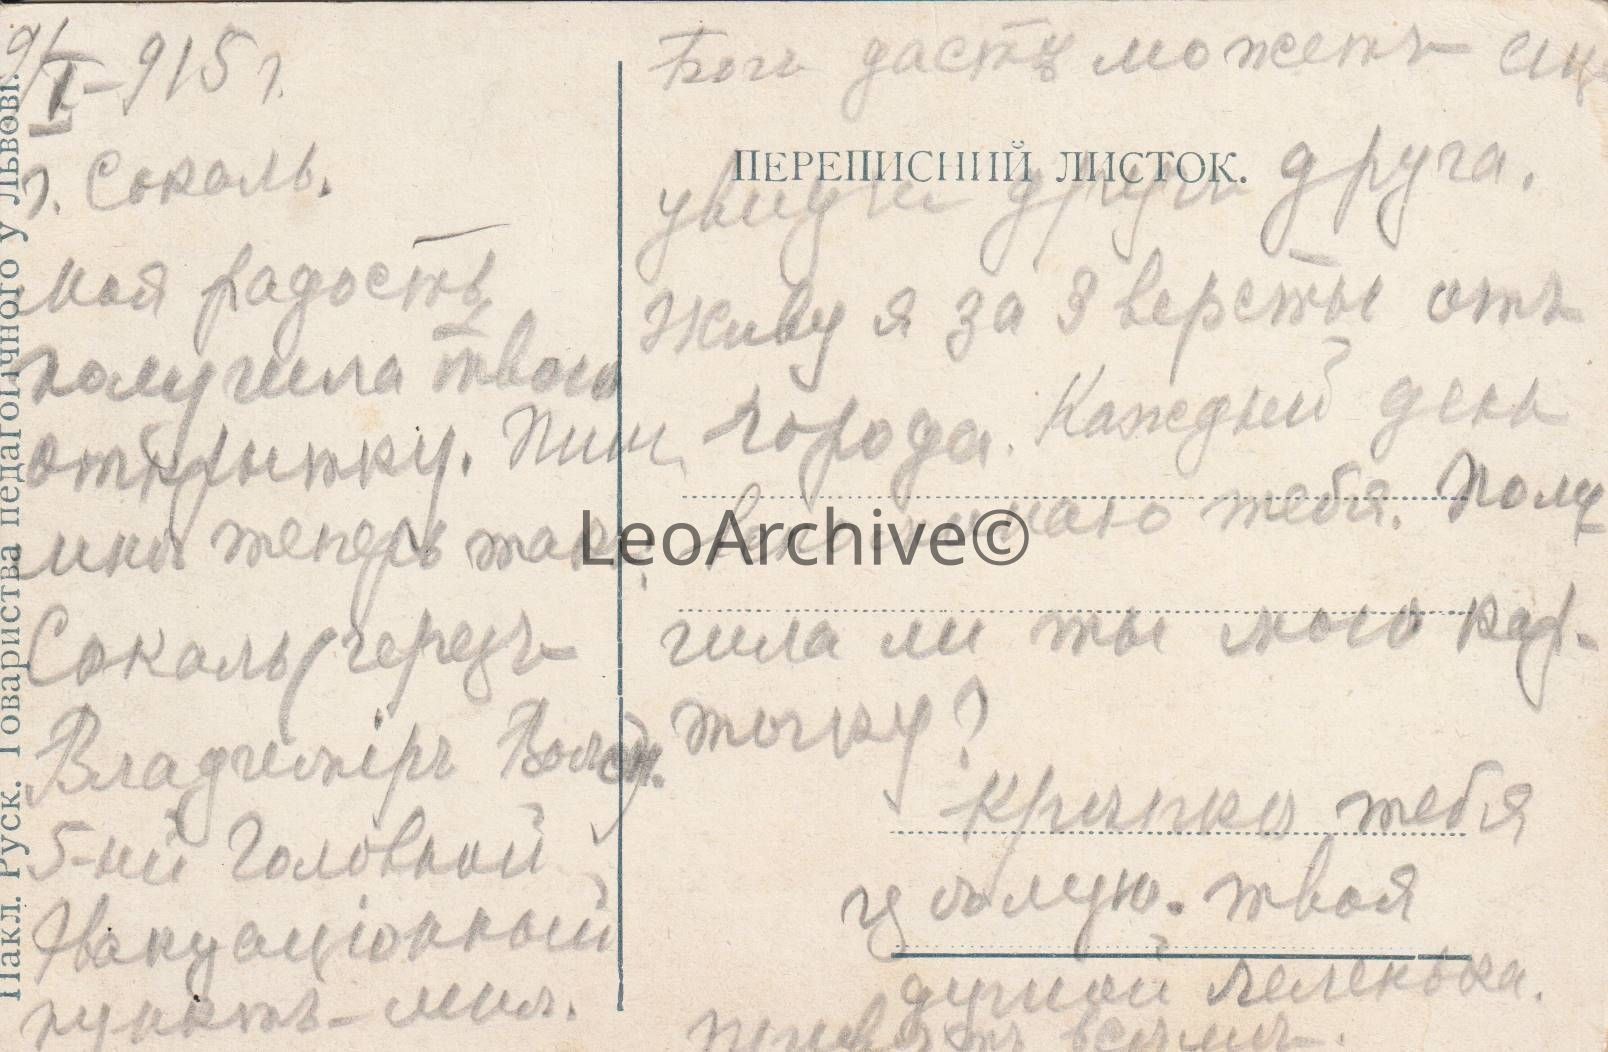 9/I - 915 г.
г. Сокаль.
Моя радость
получила твою
открытку. Пиши
мнѣ теперь такъ:
Сокаль (черезъ
Владимiръ Волын.
5-ый Головной
Эвакуацiонный
пунктъ - мнѣ.
Богъ дастъ можетъ еще
увидим другъ друга.
Живу я за 3 версты отъ
города. Каждый день
вспоминаю тебя. Полу
чила ли ты мою кар-
точку?
Крѣпко тебя
цѣлую. твоя
душой Леленька.
привѣтъ всѣмъ.
ПЕРЕПИСНИЙ ЛИСТОК.
Накл. Руск. Товариства педагогічного у Львові.
LeoArchive©